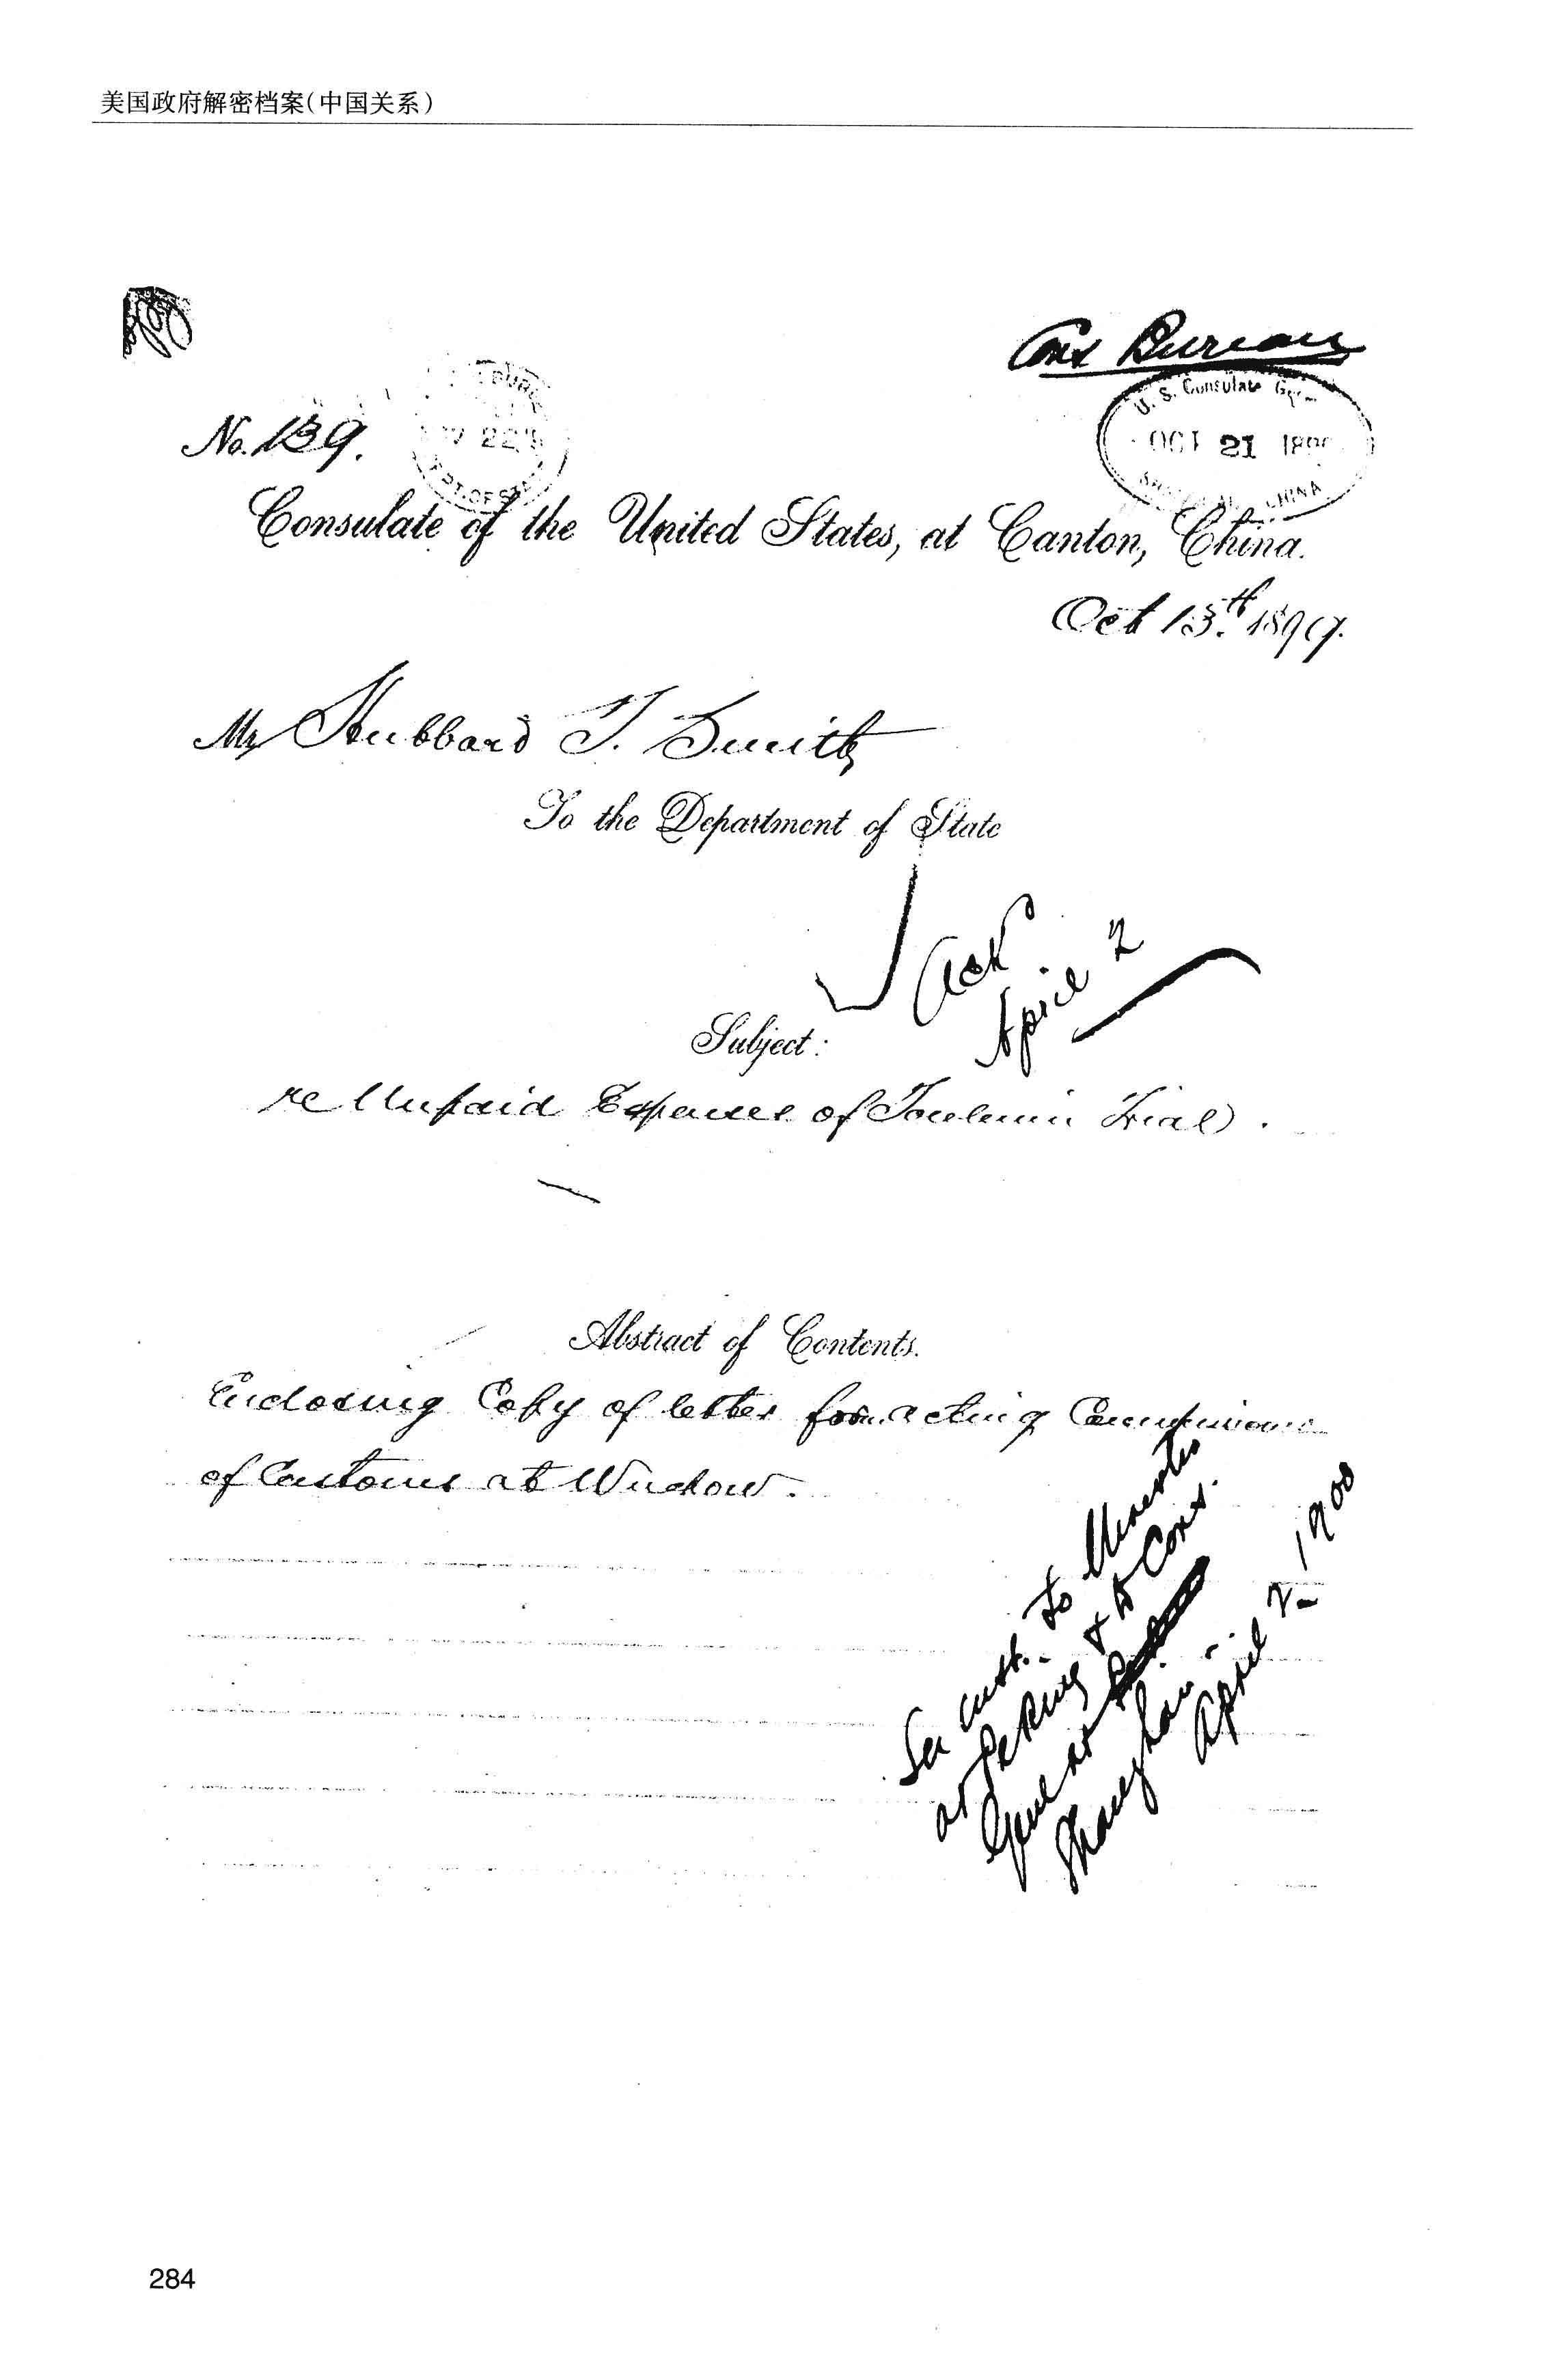 美国政府解密档案(中国关系)
Cons Bureau
U. S. Consulate
OCT 21
CHINA
No. 139.
22
Consulate of the United States, at Canton, China.
Oct 13th 1899.
Mr Hubbard T. Smith
To the Department of State
Ack
April 2
Subject:
re Unpaid Expenses of Toulmin Trial.
Abstract of Contents.
Enclosing Copy of letter from acting Commissioner
of Customs at Wuchow.
See inst. to Minister
at Peking & to Cons.
Genl at
Shanghai.
April 2- 1900
284